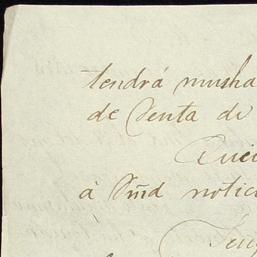 tendrá musha
de Venta de
Quei
á Smd notici
Teng